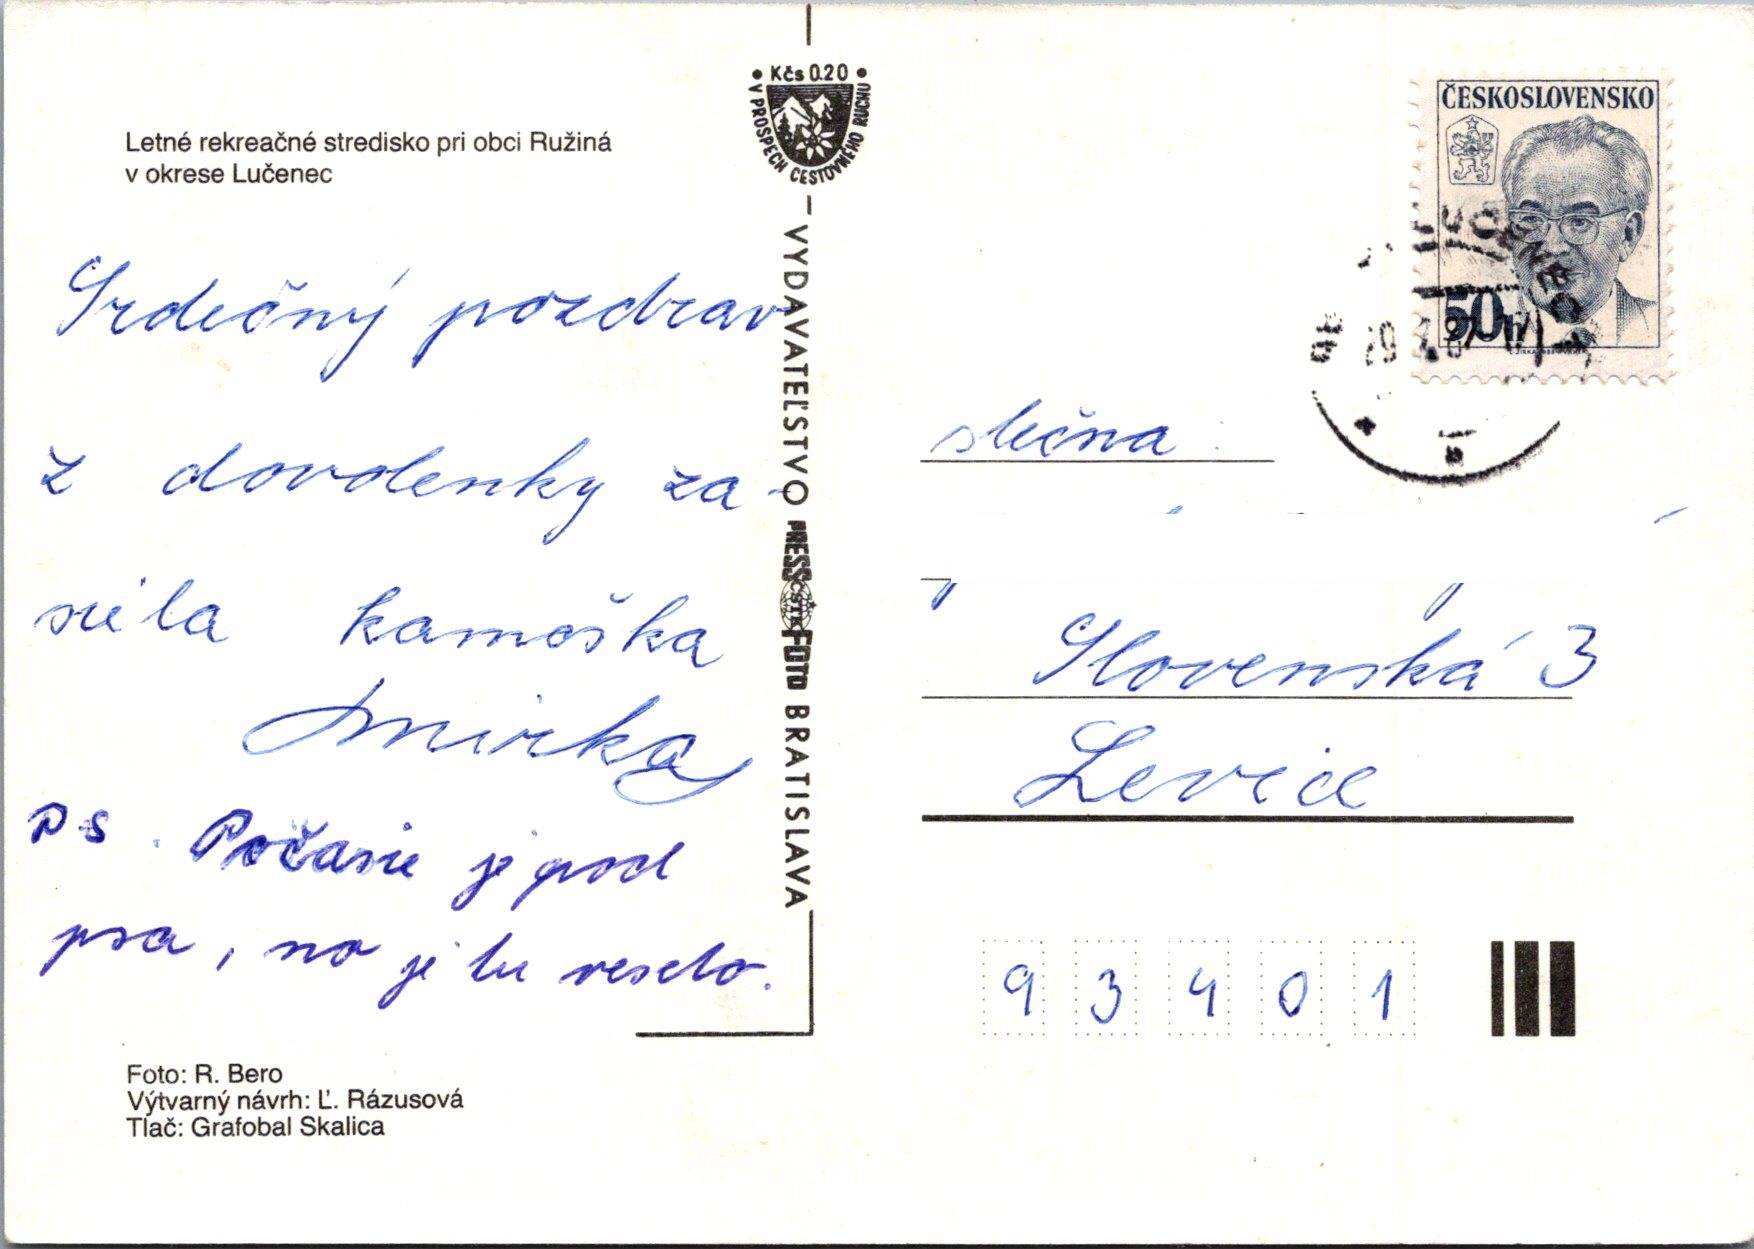 Letné rekreačné stredisko pri obci Ružiná
v okrese Lučenec
Srdečný pozdrav
z dovolenky za-
siela kamoška
Mirka
PS. Počasie je pod
psa, no je tu veselo.
Foto: R. Bero
Výtvarný návrh: Ľ. Rázusová
Tlač: Grafobal Skalica
• Kčs 0.20 •
V PROSPECH CESTOVNÉHO RUCHU
VYDAVATEĽSTVO PRESSFOTO BRATISLAVA
ČSTK
ČESKOSLOVENSKO
50h
slečna
Slovenská 3
Levice
93401